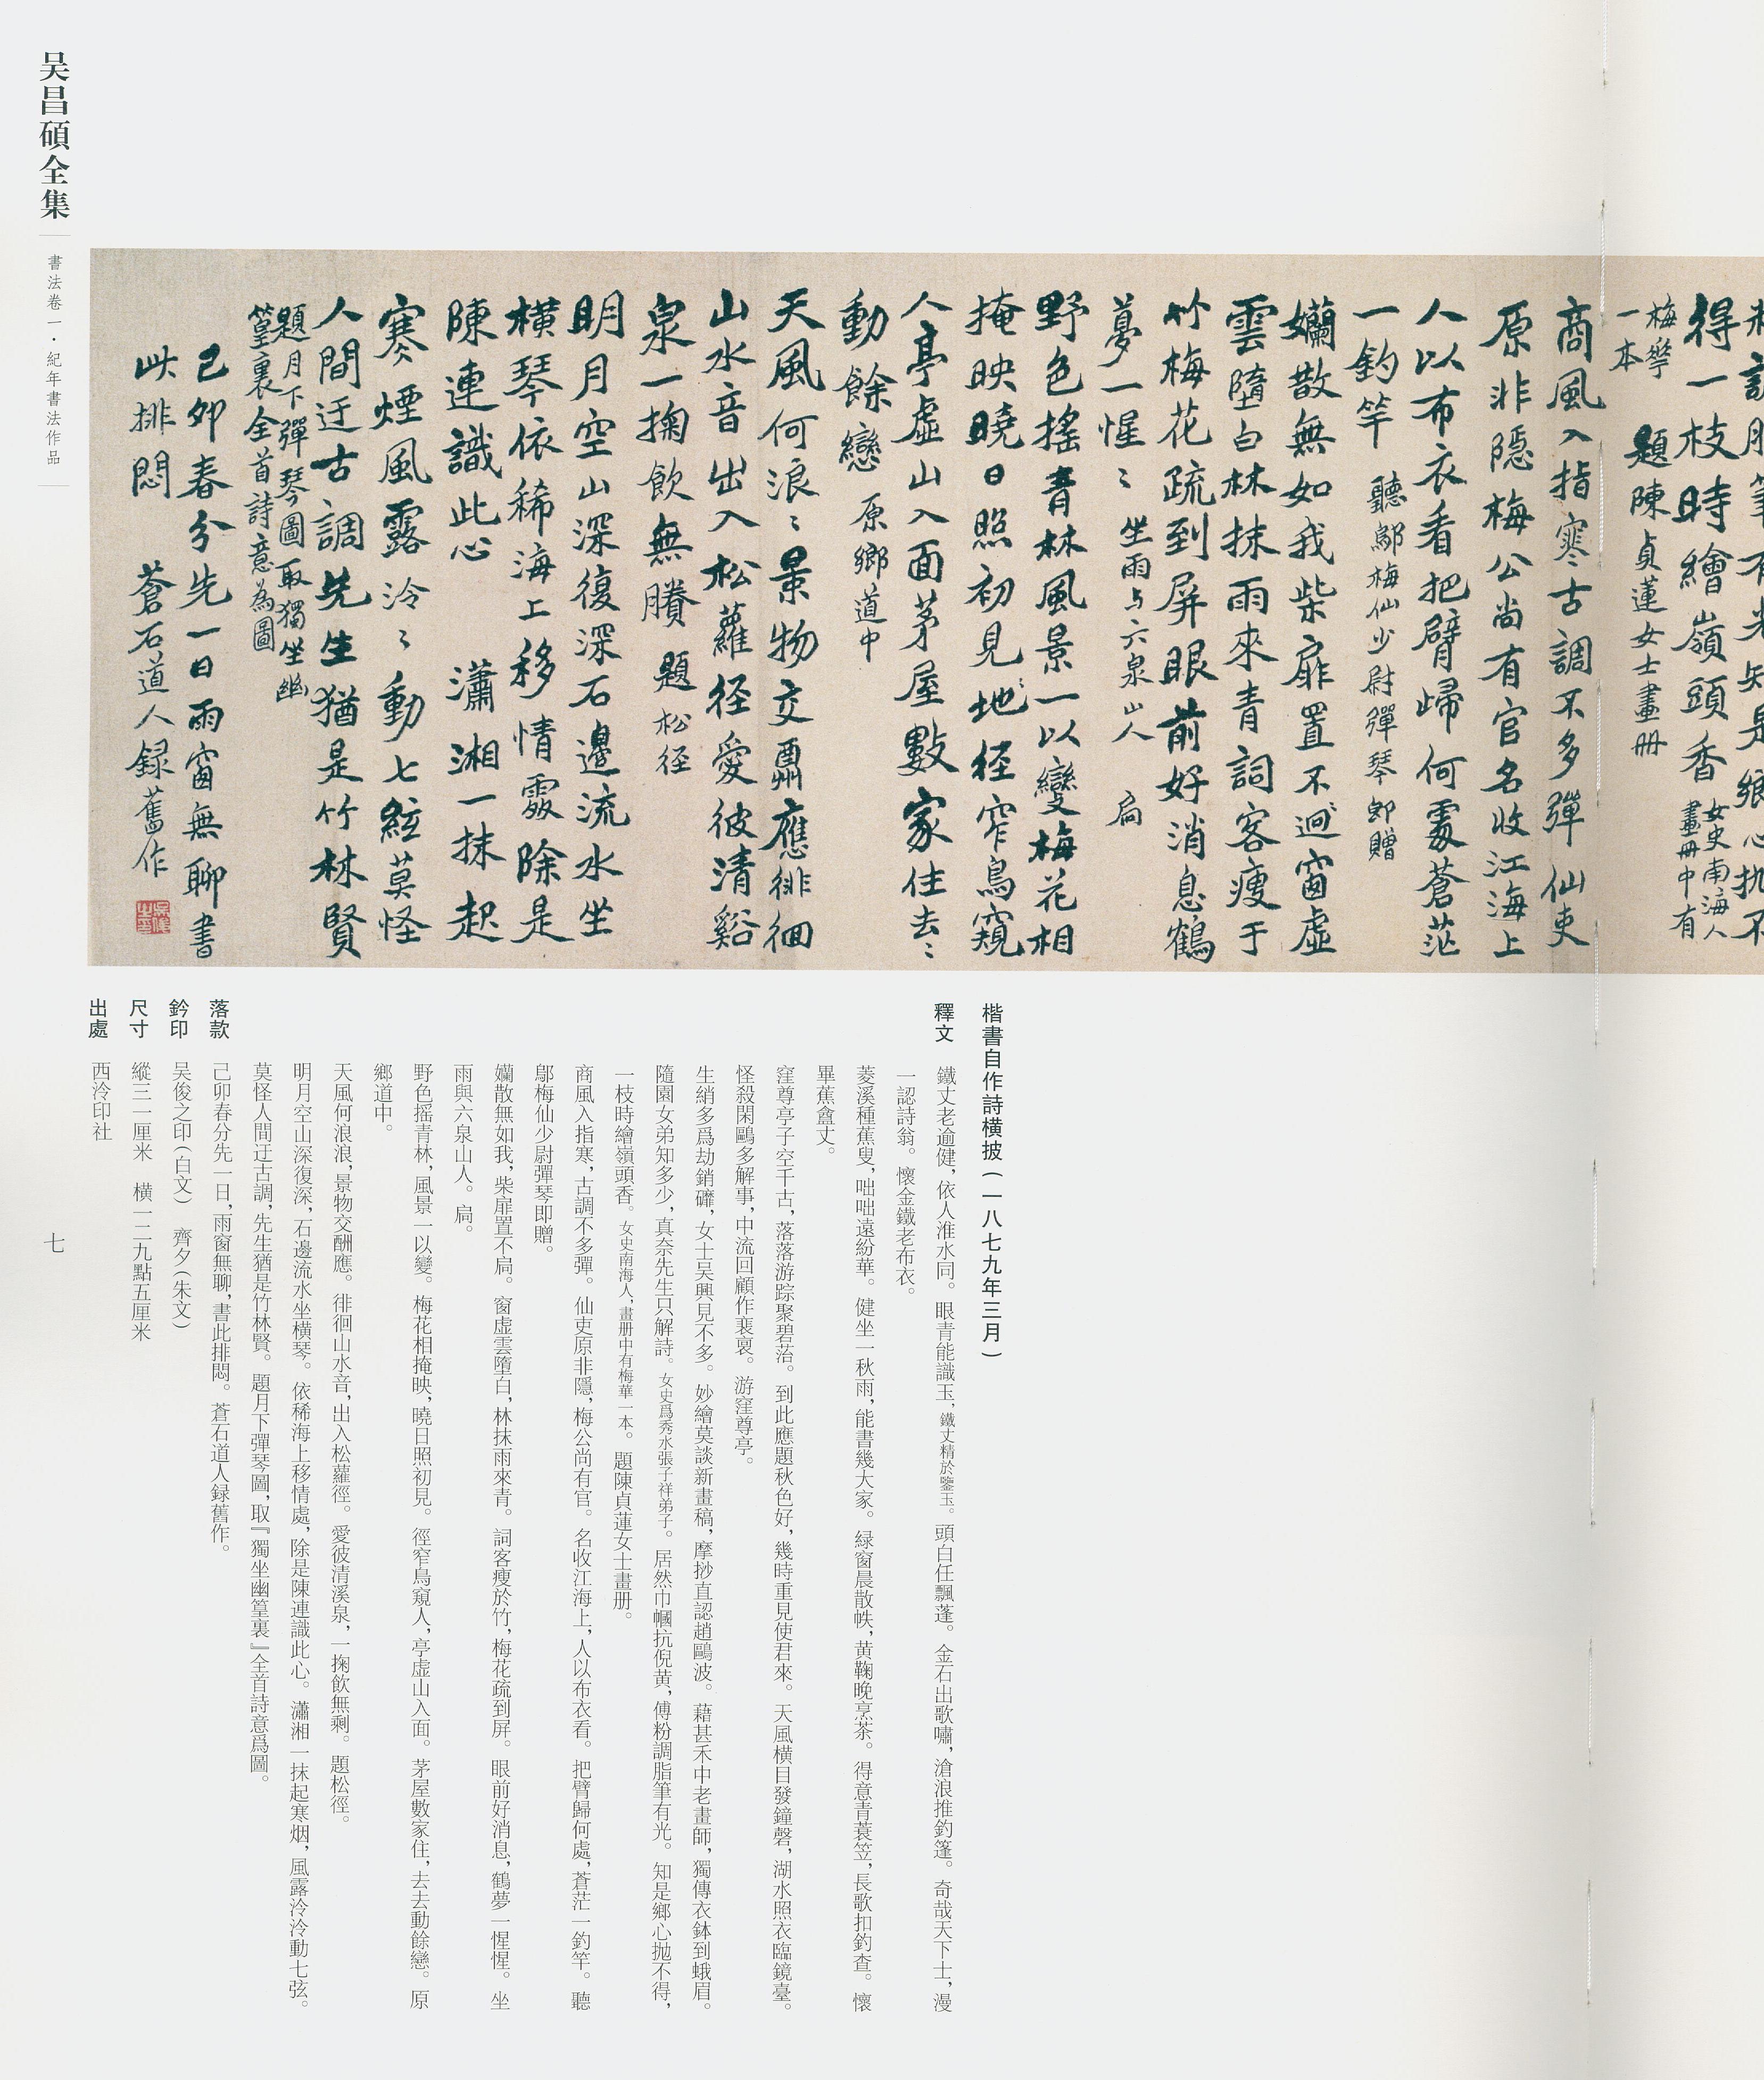 得一枝時繪嶺頭香
女史南海人
畫冊中有
梅華
一本
題陳貞蓮女士畫冊
商風入指寒古調不多彈仙吏
原非隱梅公尚有官名收江海上
人以布衣看把臂歸何處蒼茫
一釣竿 聽鄔梅仙少尉彈琴即贈
嬾散無如我柴扉置不迥窗虛
雲墮白林抹雨來青詞客瘦于
竹梅花疏到屏眼前好消息鶴
夢一惺〻 坐雨与六泉山人 扃
野色搖青林風景一以變梅花相
掩映曉日照初見〻地徑窄鳥窺
人亭虛山入面茅屋數家住去〻
動餘戀 原鄉道中
天風何浪〻景物交酬應徘徊
山水音出入松蘿徑愛彼清谿
泉一掬飲無賸 題松徑
明月空山深復深石邊流水坐
橫琴依稀海上移情處除是
陳連識此心 瀟湘一抹起
寒煙風露泠〻動七絃莫怪
人間迂古調先生猶是竹林賢
題月下彈琴圖取獨坐幽
篁裏全首詩意為圖
己卯春分先一日雨窗無聊書
此排悶 蒼石道人録舊作
吴昌碩全集
書法卷一・紀年書法作品
楷書自作詩横披（一八七九年三月）
釋文 鐵丈老逾健，依人淮水同。眼青能識玉，鐵丈精於鑒玉。頭白任飄蓬。金石出歌嘯，滄浪推釣篷。奇哉天下士，漫
一認詩翁。懷金鐵老布衣。
菱溪種蕉叟，咄咄遠紛華。健坐一秋雨，能書幾大家。緑窗晨散帙，黄鞠晚烹茶。得意青蓑笠，長歌扣釣查。懷
畢蕉盦丈。
窪尊亭子空千古，落落游踪聚碧萿。到此應題秋色好，幾時重見使君來。天風横目發鐘磬，湖水照衣臨鏡臺。
怪殺閑鷗多解事，中流回顧作裴裒。游窪尊亭。
生綃多爲劫銷礲，女士吴興見不多。妙繪莫談新畫稿，摩抄直認趙鷗波。藉甚禾中老畫師，獨傳衣鉢到蛾眉。
隨園女弟知多少，真奈先生只解詩。女史爲秀水張子祥弟子。居然巾幗抗倪黄，傅粉調脂筆有光。知是鄉心抛不得，
一枝時繪嶺頭香。女史南海人，畫册中有梅華一本。題陳貞蓮女士畫册。
商風入指寒，古調不多彈。仙吏原非隱，梅公尚有官。名收江海上，人以布衣看。把臂歸何處，蒼茫一釣竿。聽
鄔梅仙少尉彈琴即贈。
嬾散無如我，柴扉置不扃。窗虛雲墮白，林抹雨來青。詞客瘦於竹，梅花疏到屏。眼前好消息，鶴夢一惺惺。坐
雨與六泉山人。扃。
野色摇青林，風景一以變。梅花相掩映，曉日照初見。徑窄鳥窺人，亭虚山入面。茅屋數家住，去去動餘戀。原
鄉道中。
天風何浪浪，景物交酬應。徘徊山水音，出入松蘿徑。愛彼清溪泉，一掬飲無剩。題松徑。
明月空山深復深，石邊流水坐横琴。依稀海上移情處，除是陳連識此心。瀟湘一抹起寒烟，風露泠泠動七弦。
莫怪人間迂古調，先生猶是竹林賢。題月下彈琴圖，取『獨坐幽篁裏』全首詩意爲圖。
落款 己卯春分先一日，雨窗無聊，書此排悶。蒼石道人録舊作。
鈐印 吴俊之印（白文） 齊夕（朱文）
尺寸 縱三一厘米 横一二九點五厘米
出處 西泠印社
七